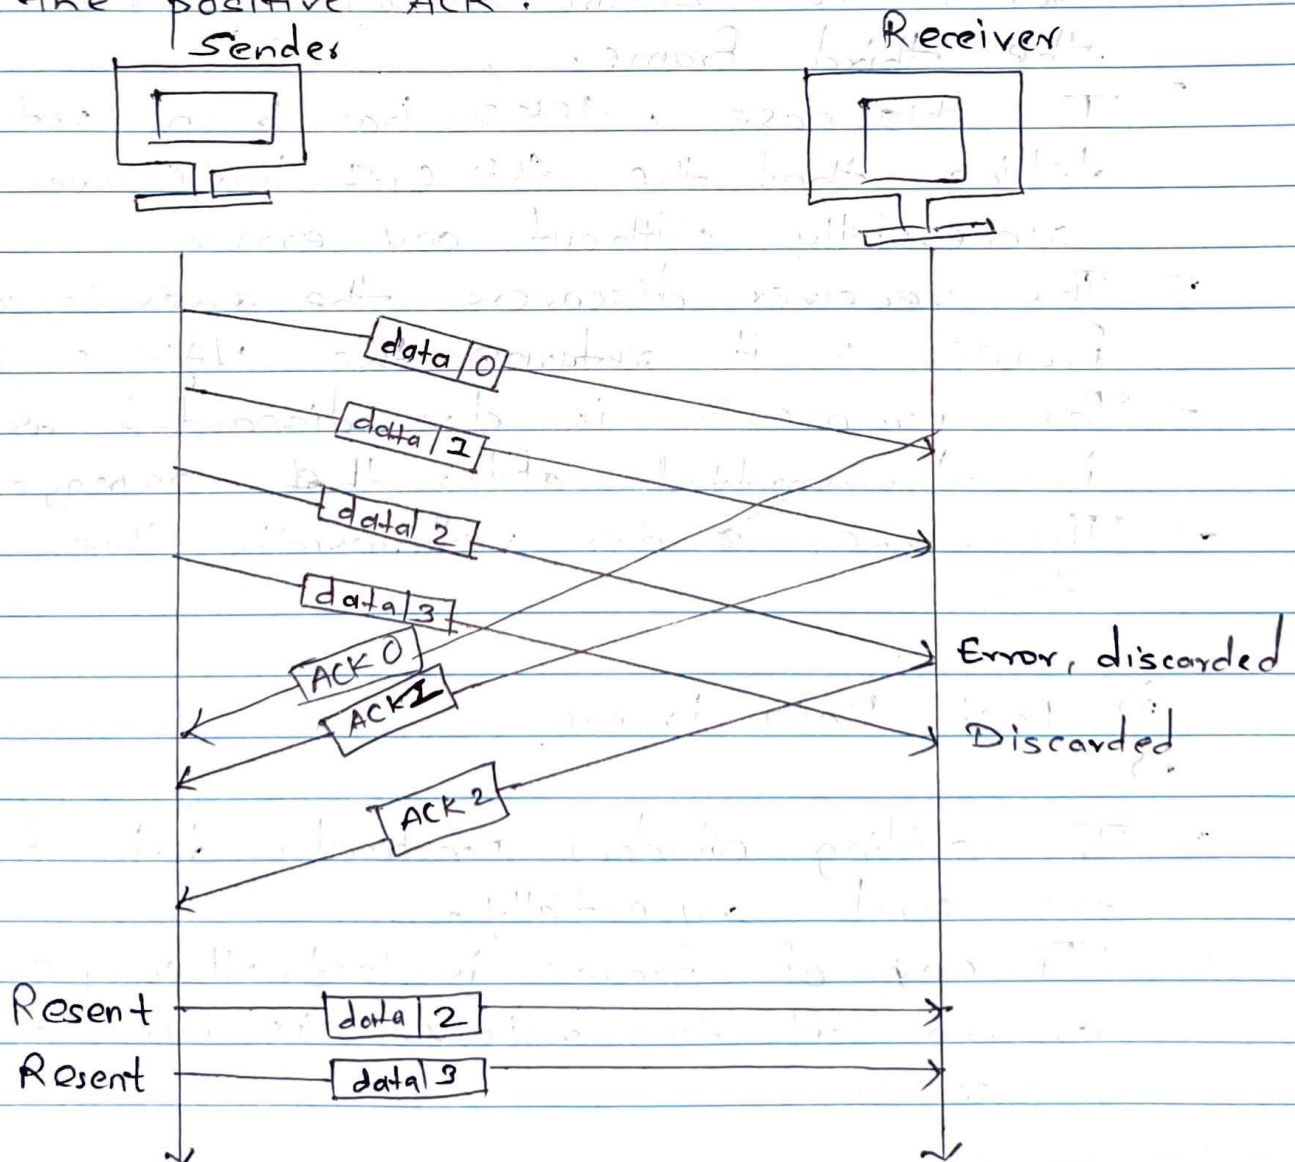 the positive ACK.
Sender
Receiver
data 0
data 1
data 2
data 3
ACK 0
ACK 1
Error, discarded
Discarded
ACK 2
Resent data 2
Resent data 3